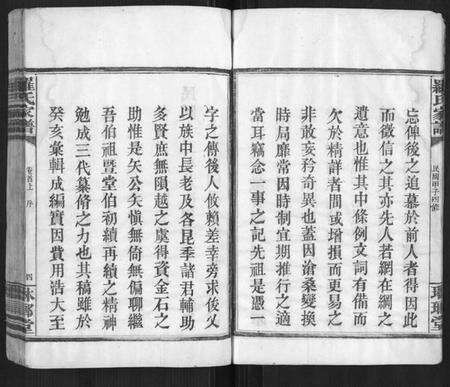 羅氏家譜
民國甲子四修
琳瑯堂
忘俾後之追慕於前人者得因此
而徵信之其亦先人若網在綱之
遺意也惟其中條例文詞有備而
欠於精詳者間或增損而更易之
非敢妄矜奇異也蓋因滄桑變換
時局靡常因時制宜期推行之適
當耳竊念一事之記先祖是憑一
字之傳後人攸賴差幸旁求俊乂
以族中長老及各昆季諸君輔助
多賢庶無隕越之虞得資金石之
助惟是矢公矢慎無倚無偏聊繼
吾伯祖暨堂伯初續再續之精神
勉成三代纂脩之力也其稿雖於
癸亥彙輯成編實因費用浩大至
羅氏家譜
卷首上 序
四
琳瑯堂